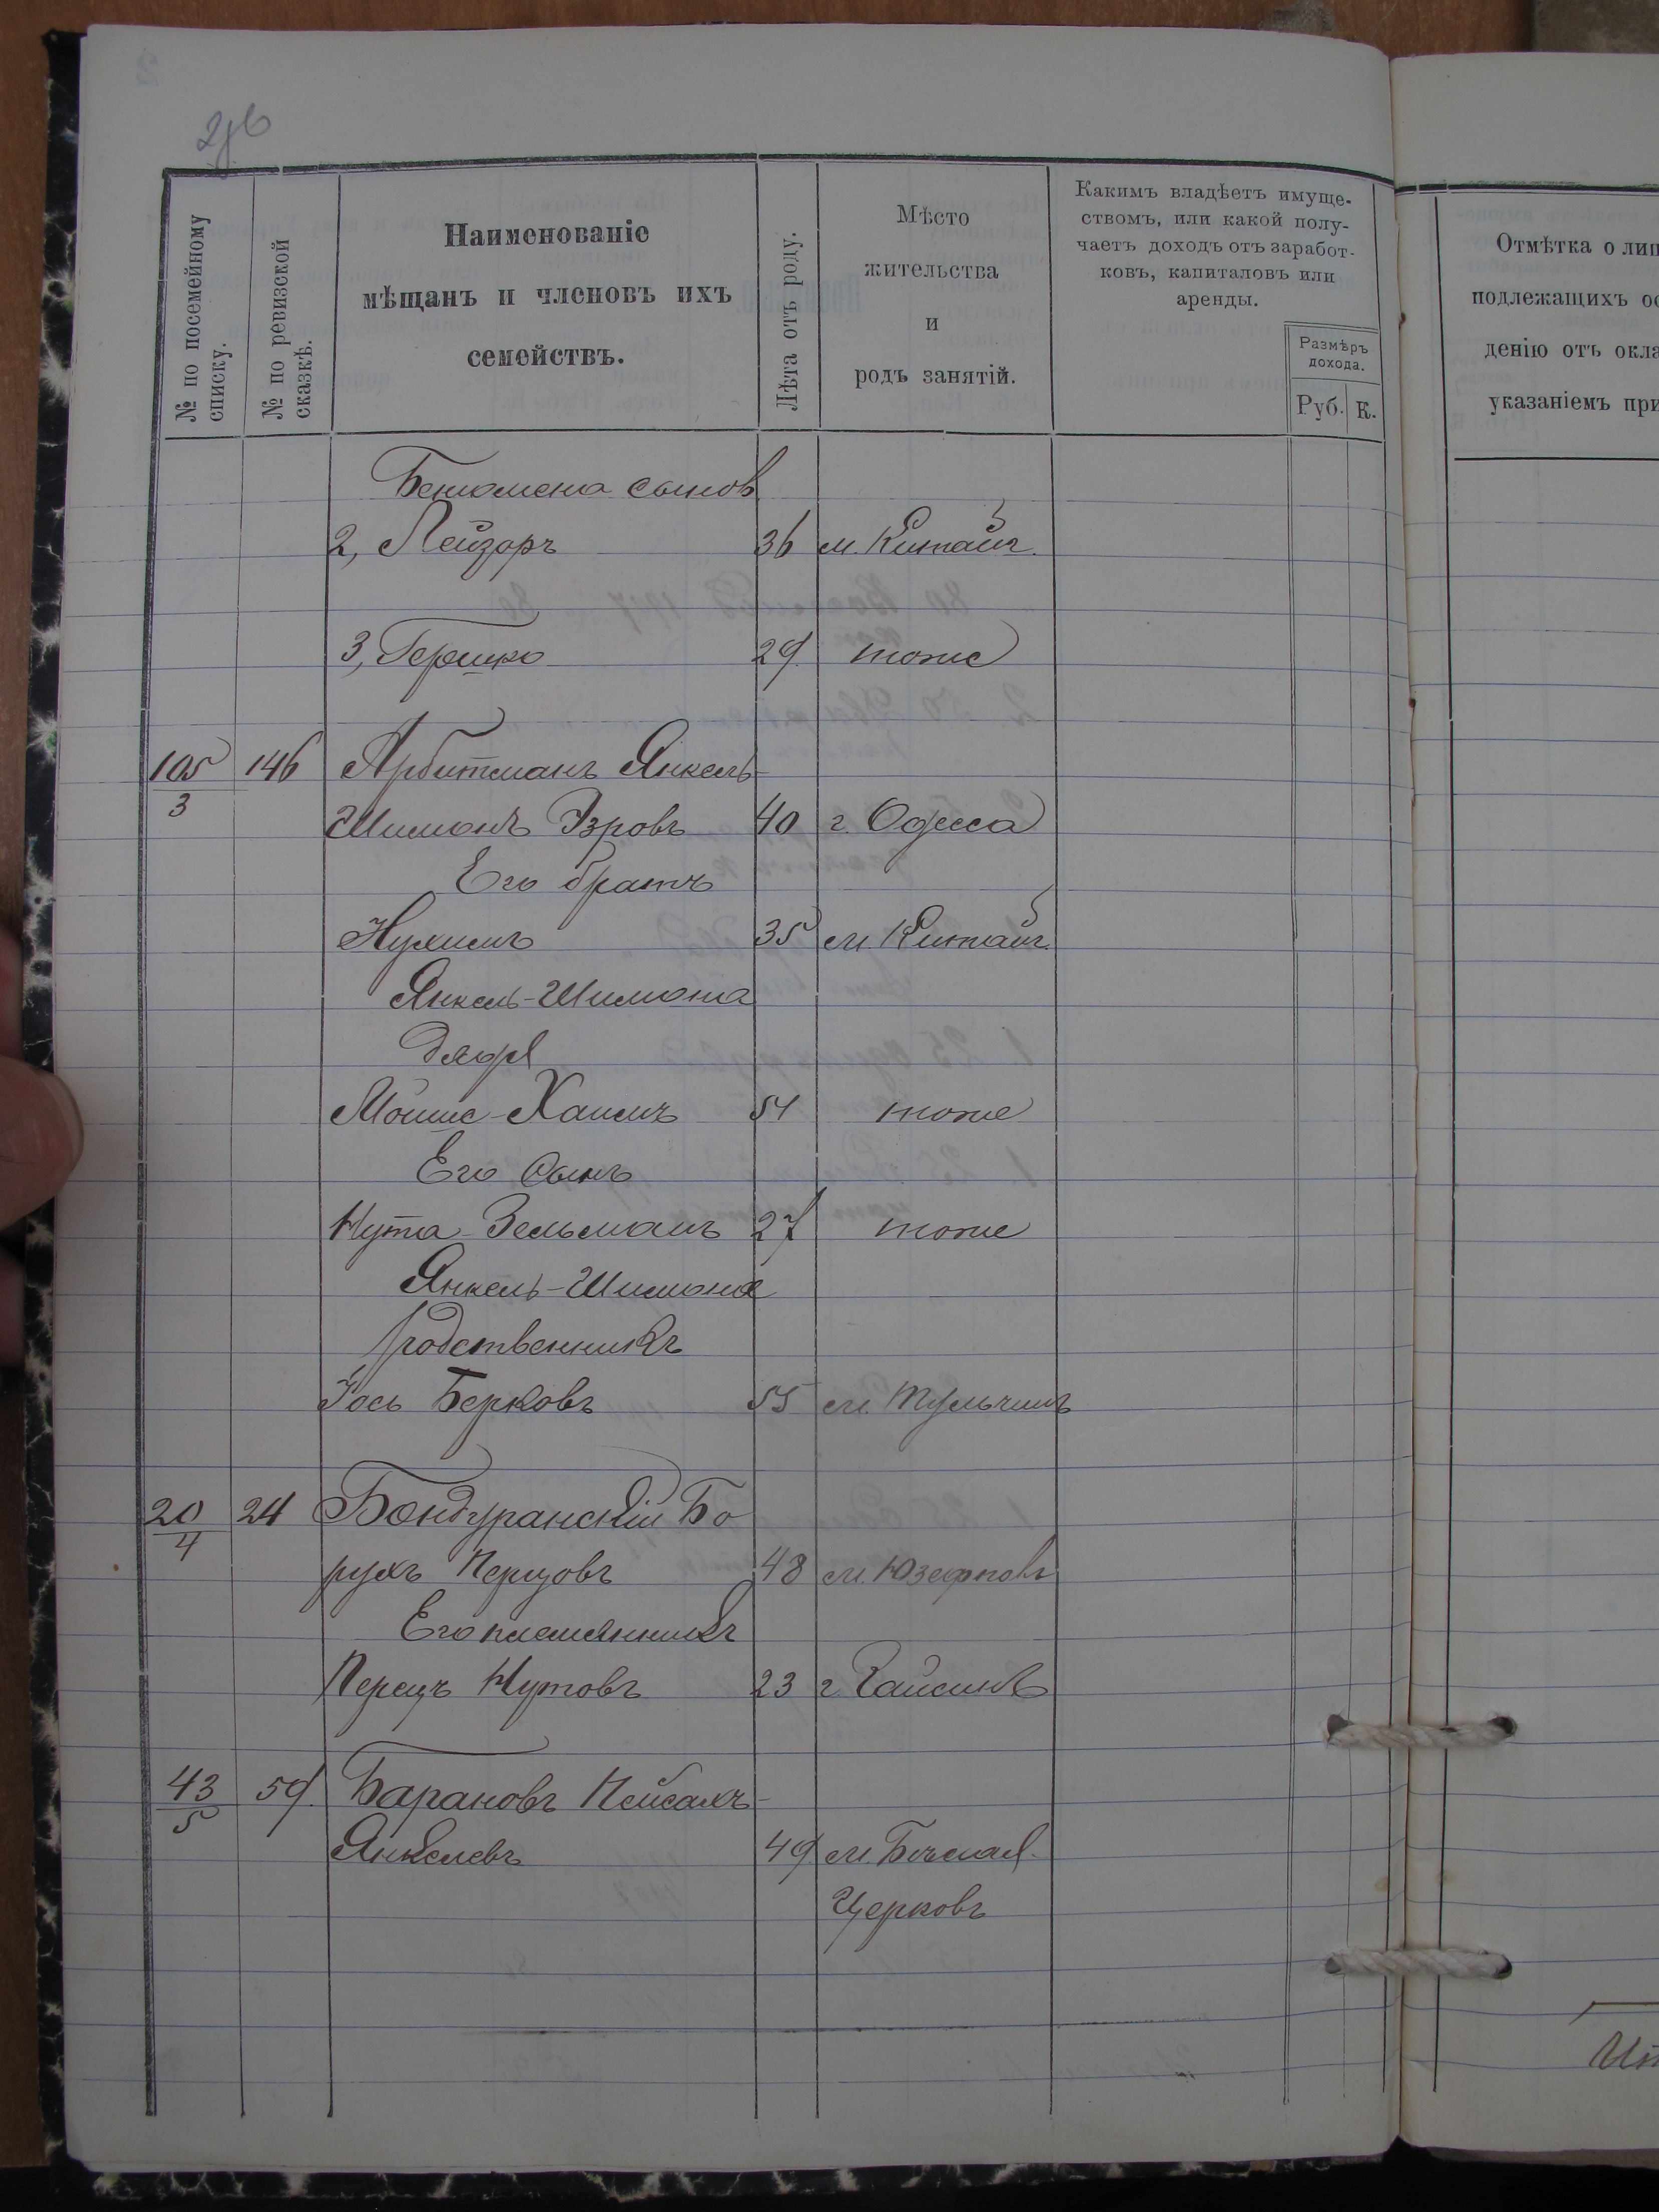 2об
№ по посемейному
списку.
№ по ревизской
сказкѣ.
Наименованіе
мѣщанъ и членовъ ихъ
семействъ.
Лѣта отъ роду.
Мѣсто
жительства
и
родъ занятій.
Какимъ владѣетъ имуще-
ствомъ, или какой полу-
чаетъ доходъ отъ заработ-
ковъ, капиталовъ или
аренды.
Размѣръ
дохода.
Руб. К.
Отмѣтка о лиц
подлежащихъ ос
денію отъ окла
указаніемъ при
Бенюмена сынов
2, Лейзоръ 36 м. Китайг.
3, Гершко 29 тоже
105/3 146 Арбитманъ Янкель-
Шимонъ Эзровъ 40 г. Одесса
Его братъ
Нухимъ 35 м. Китайг.
Янкель-Шимона
дядя
Мойше-Хаимъ 51 тоже
Его Сынъ
Нута-Зельманъ 27 тоже
Янкель-Шимона
родственникъ
Іось Берковъ 55 м. Тульчинъ
20/4 24 Бондуранскій Бо
рухъ Перцовъ 48 м. Юзефповь
Его племянникъ
Перецъ Нутовъ 23 г. Гайсинъ
43/5 59 Барановъ Пейсахъ-
Янкелевъ 49 м. Бѣлая
Церковь
Ит